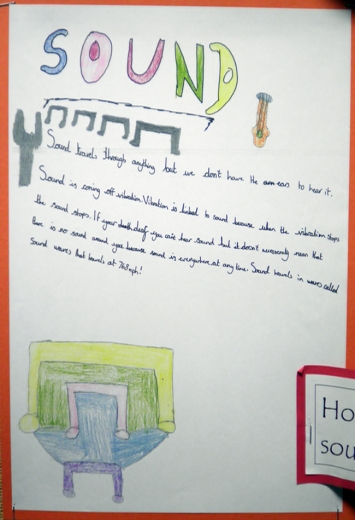 SOUND
Sound travels through anything but we don't have the ears to hear it.
Sound is coming off vibration. Vibration is linked to sound because when the vibration stops
the sound stops. If your death deaf you can't hear sound but it doesn't mean that
there is no sound around you because sound is everywhere at any time. Sound travels in waves called
sound waves that travels at 768mph!
Ho
sou